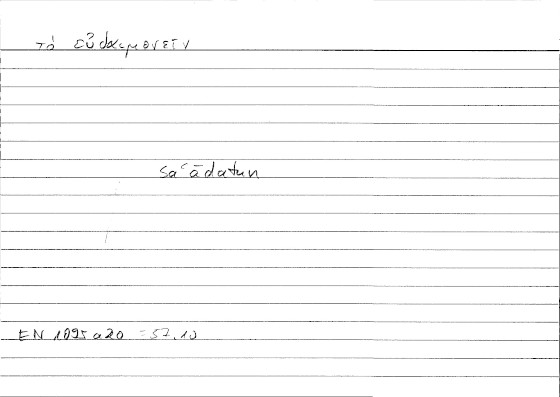 τὸ εὐδαιμονεῖν
saʿādatun
EN 1095a20 = 57.10